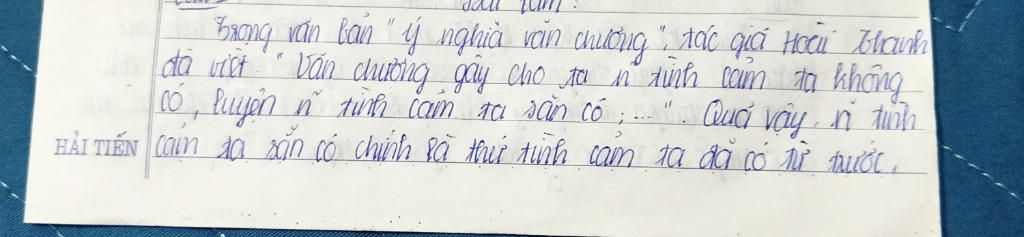 sâu lắm.
Trong văn bản "ý nghĩa văn chương", tác giả Hoài Thanh
đã viết "Văn chương gây cho ta n tình cảm ta không
có, luyện n~ tình cảm ta sẵn có; ...". Quả vậy, n~ tình
HẢI TIẾN cảm ta sẵn có chính là thứ tình cảm ta đã có từ trước.